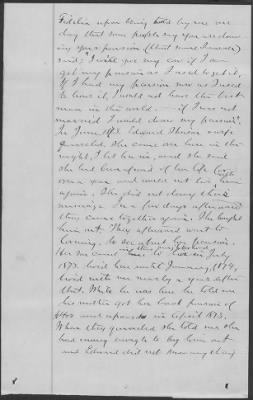 Fidelia upon being told by me one
day that some people say you are draw-
ing your pension (that some I answered)
said; "I will give my cow if I can
get my pension as I used to get it.
If I had my pension now as I used
to have it, I would not have the best
man in the world — if I was not
married I would draw my pension".
In June 1873 Edward Thomas & wife
quarreled, she came over here in the
night, I let her in, and she said
she had been afraid of her life
again. She did not deny their
marriage. In a few days afterward
they came together again. She bought
him out. They afterward went to
to see about her pension.
1873. lived here until January, 1874,
lived with me nearly a year after
that. While he was here he told me
his mother got her back pension of
$800 and upwards in April 1873.
When they quarreled she told me she
had money enough to buy him out
and Edward did not have any thing